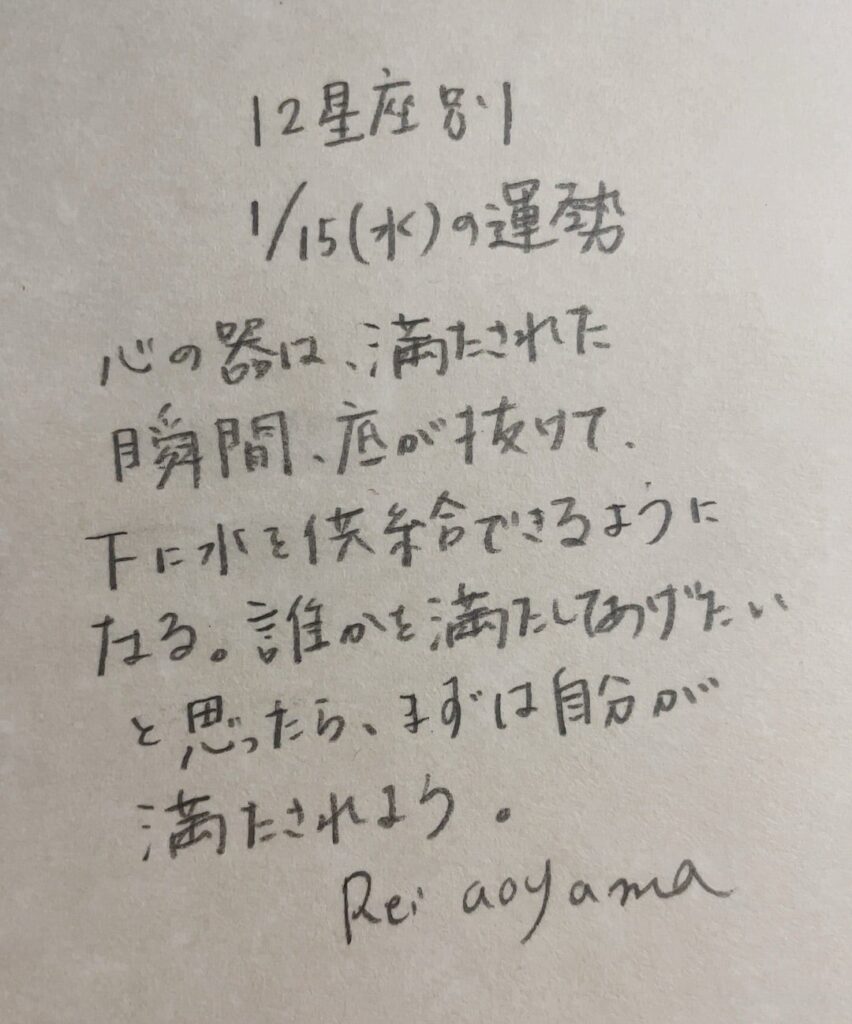 12星座別
1/15(水)の運勢
心の器は、満たされた
瞬間、底が抜けて、
下に水を供給できるように
なる。誰かを満たしてあげたい
と思ったら、まずは自分が
満たされよう。
Rei aoyama